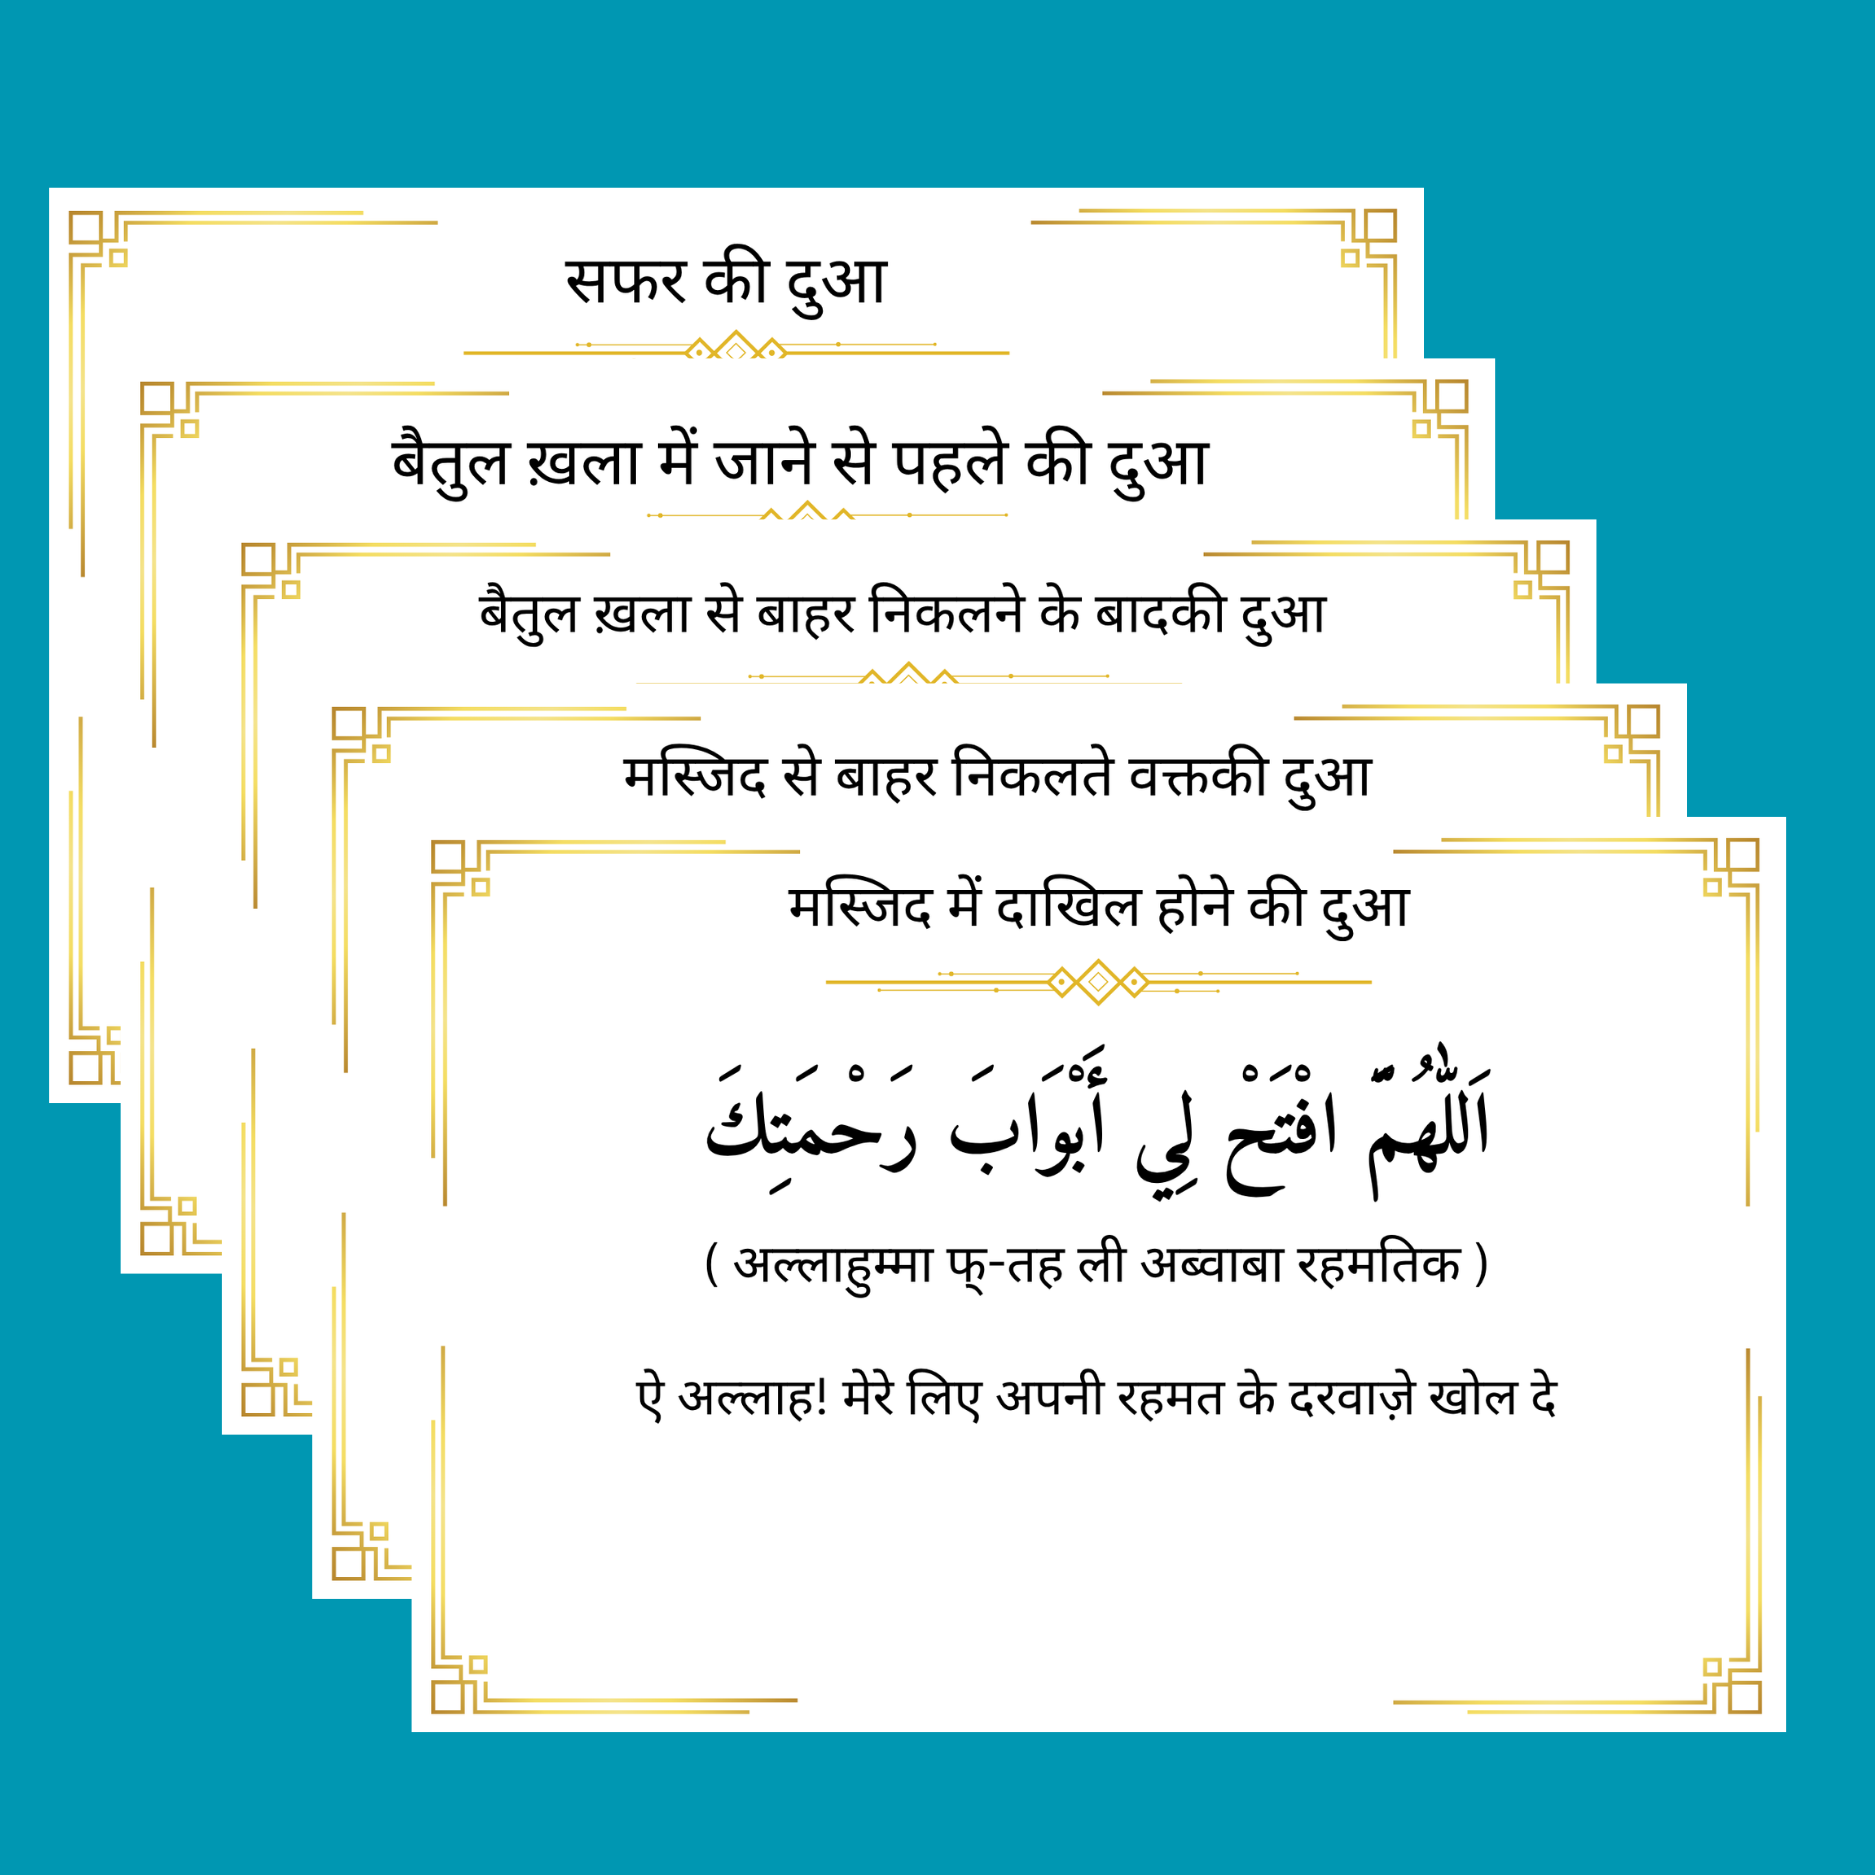 सफर की दुआ
बैतुल ख़ला में जाने से पहले की दुआ
बैतुल ख़ला से बाहर निकलने के बादकी दुआ
मस्जिद से बाहर निकलते वक्तकी दुआ
मस्जिद में दाखिल होने की दुआ
اَللّٰهُمَّ افْتَحْ لِي أَبْوَابَ رَحْمَتِكَ
( अल्लाहुम्मा फ्-तह ली अब्वाबा रहमतिक )
ऐ अल्लाह! मेरे लिए अपनी रहमत के दरवाज़े खोल दे